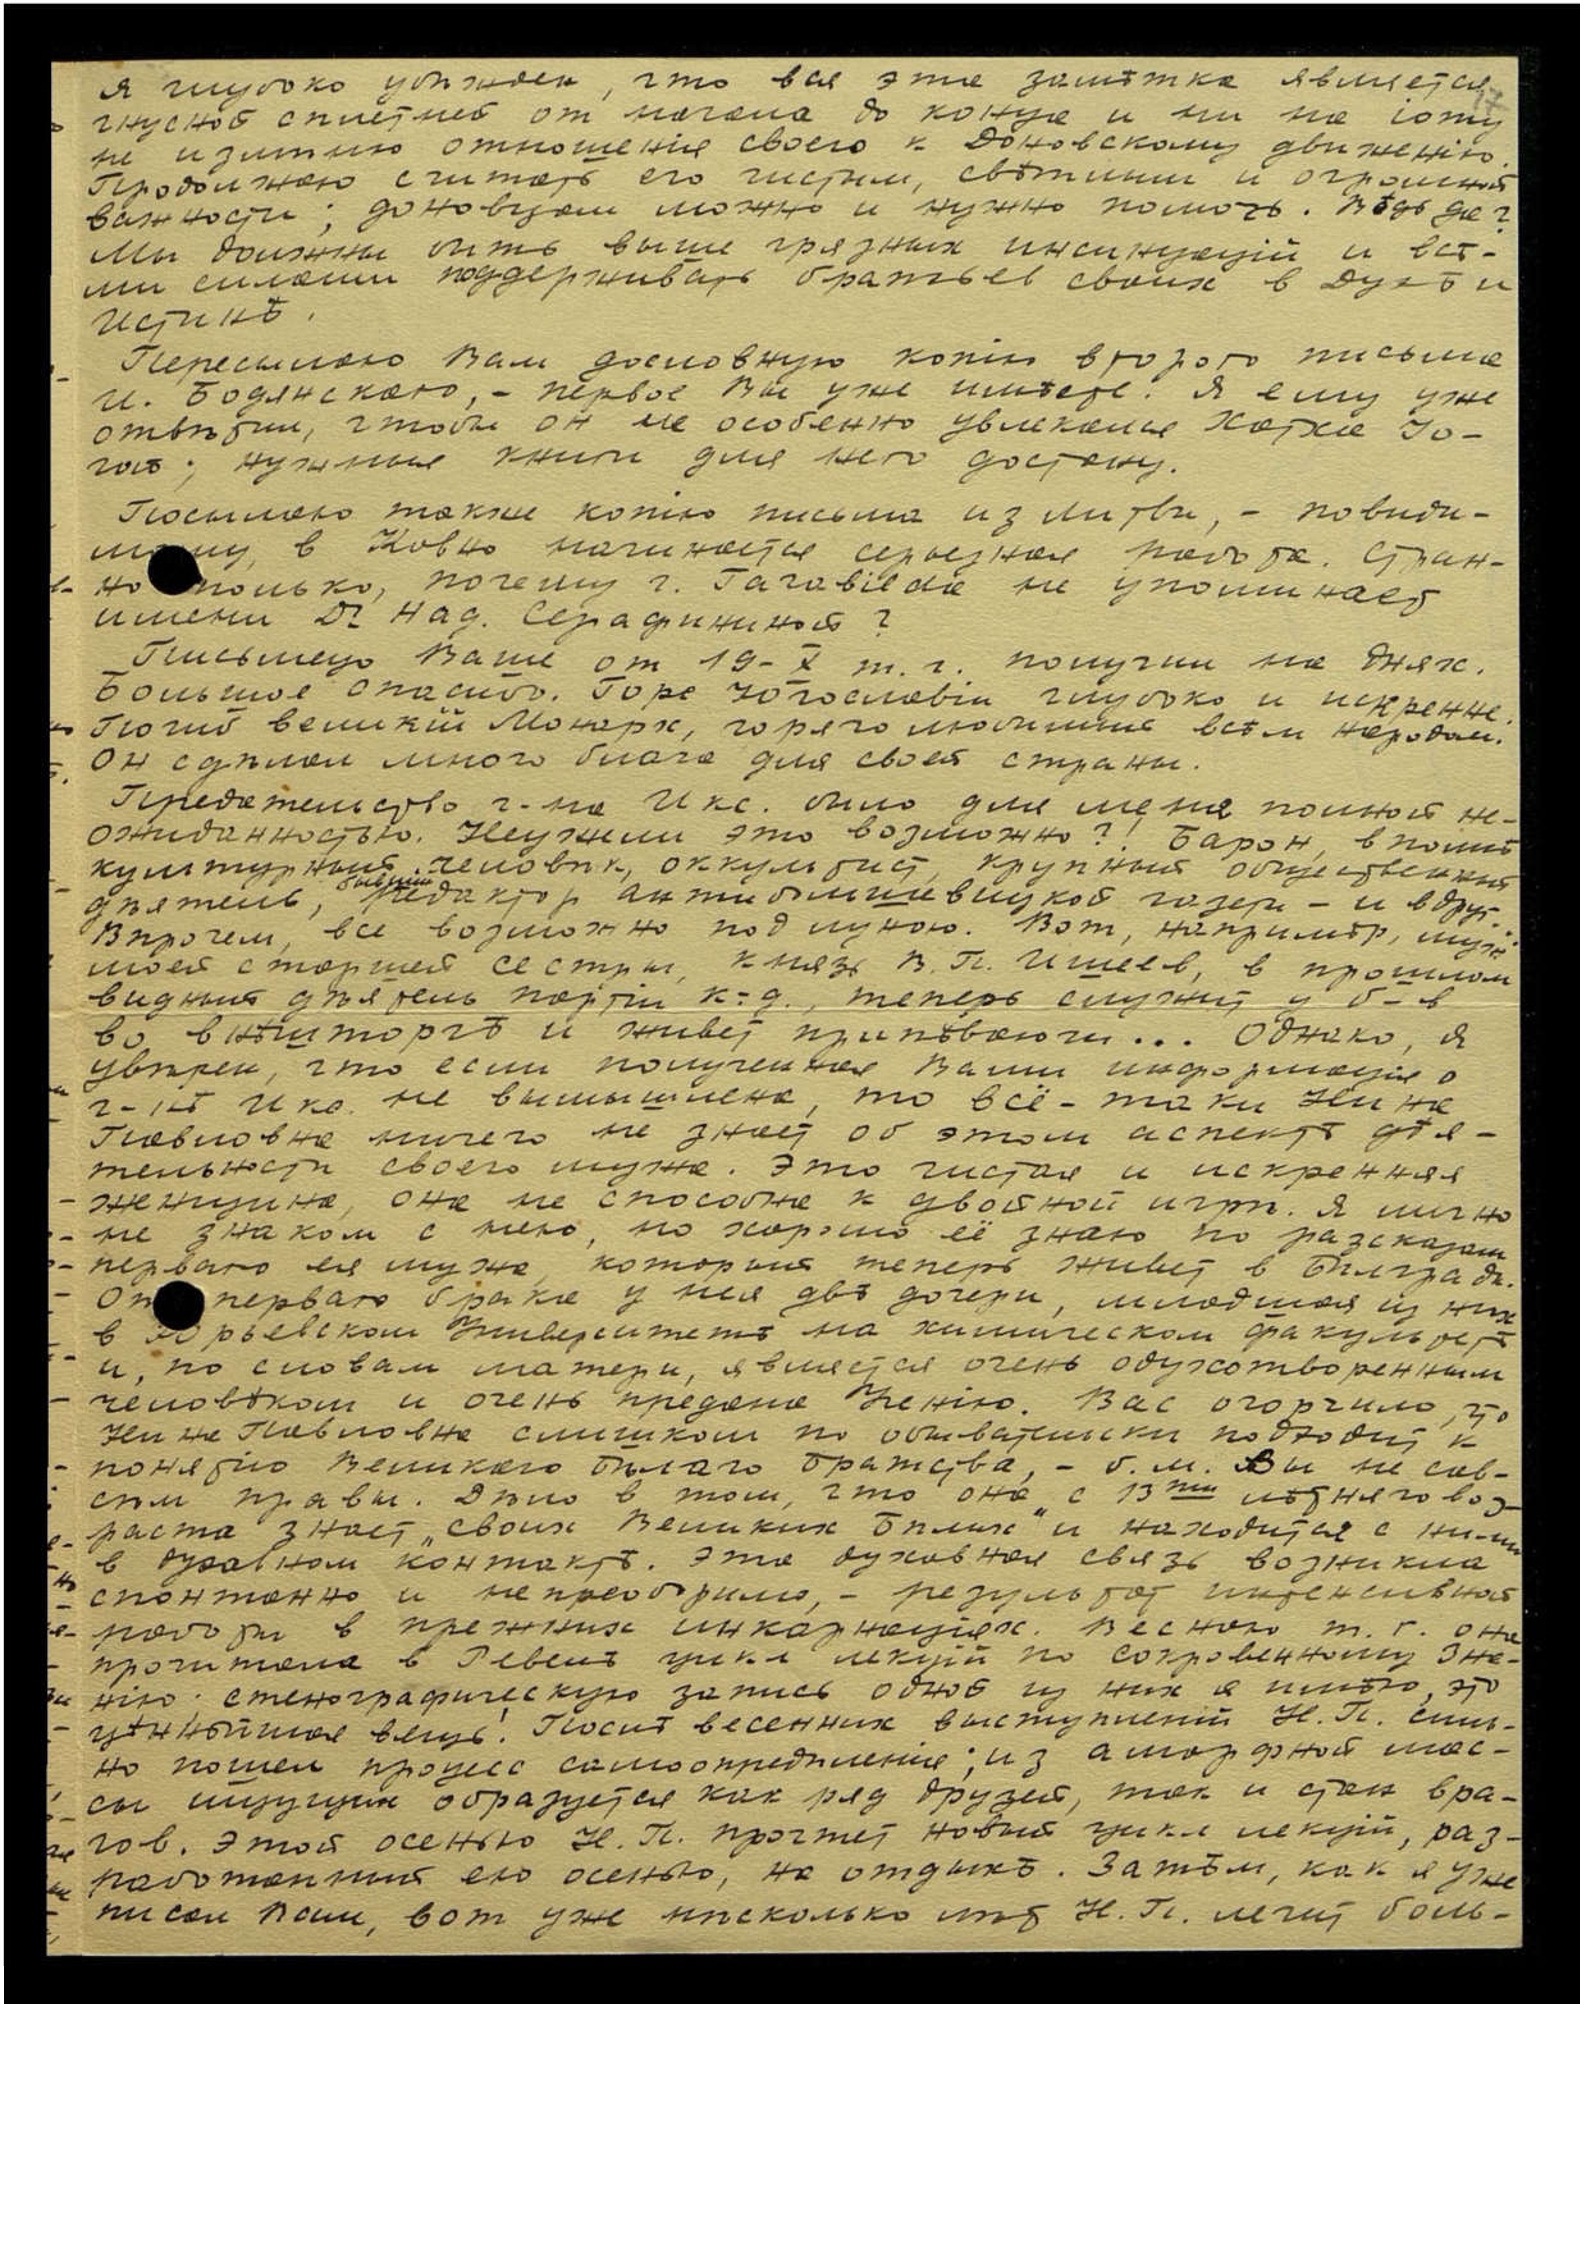 я глубоко убѣжден, что вся эта замѣтка является
17
гнусной сплетней от начала до конца и ни на іоту
не измѣню отношенія своего к Доновскому движенію.
Продолжаю считать его чистым, свѣтлым и огромной
важности; доновцам можно и нужно помочь. Вѣдь да?
Мы должны быть выше грязных инсинуацій и всѣ-
ми силами поддерживать братьев своих в Духѣ и
Истинѣ.
Пересылаю Вам дословную копію второго письма
И. Бодянскаго, - первое Вы уже имѣете. Я ему уже
отвѣтил, чтобы он не особенно увлекался Хатха Іо-
гой; нужныя книги для него достану.
Посылаю также копію письма из Литвы, - повиди-
мому, в Ковно начинается серьезная работа. Стран-
но только, почему г. Tarabilda не упоминает
имени Dr Над. Серафининой?
Письмецо Ваше от 19-X т. г. получил на днях.
Большое спасибо. Горе Югославіи глубоко и искренне.
Погиб великій Монарх, горячо любимый всѣм народом.
Он сдѣлал много блага для своей страны.
Предательство г-на Икс. было для меня полной не-
ожиданностью. Неужели это возможно?! Барон, вполнѣ
культурный человѣк, оккультист, крупный общественный
дѣятель, бывший редактор антибольшевицкой газеты - и вдруг..
Впрочем, все возможно под луною. Вот, напримѣр, муж
моей старшей сестры, князь В. П. Ишеев, в прошлом
видный дѣятель партіи к-д., теперь служит у б-в
во внѣшторгѣ и живет припѣваючи... Однако, я
увѣрен, что если полученная Вами информація о
г-нѣ Икс. не вымышлена, то всё-таки Нина
Павловна ничего не знает об этом аспектѣ дѣя-
тельности своего мужа. Это чистая и искренняя
женщина, она не способна к двойной игрѣ. Я лично
не знаком с нею, но хорошо её знаю по разсказам
перваго ея мужа, который теперь живет в Бѣлградѣ.
От перваго брака у нея двѣ дочери, младшая из них
в Юрьевском Университетѣ на химическом факультетѣ
и, по словам матери, является очень одухотворенным
человѣком и очень предана Ученію. Вас огорчило, что
Нина Павловна слишком по обывательски подходит к
понятію Великаго Бѣлаго Братства, - б. м. Вы не сов-
сѣм правы. Дѣло в том, что она с 13ти лѣтняго воз-
раста знает „своих Великих Бѣлых" и находится с ними
в духовном контактѣ. Эта духовная связь возникла
спонтанно и непреоборимо, - результат интенсивной
работы в прежних инкарнаціях. Весною т. г. она
прочитала в Ревелѣ цикл лекцій по Сокровенному Зна-
нію. стенографическую запись одной из них я имѣю, это
цѣннѣйшая вещь! Послѣ весенних выступленій Н. П. силь-
но пошел процесс самоопредѣленія; из аморфной мас-
сы ищущих образуется как ряд друзей, так и стан вра-
гов. Этой осенью Н. П. прочтет новый цикл лекцій, раз-
работанный ею осенью, на отдыхѣ. Затѣм, как я уже
писал Вам, вот уже нѣсколько лѣт Н. П. лечит боль-